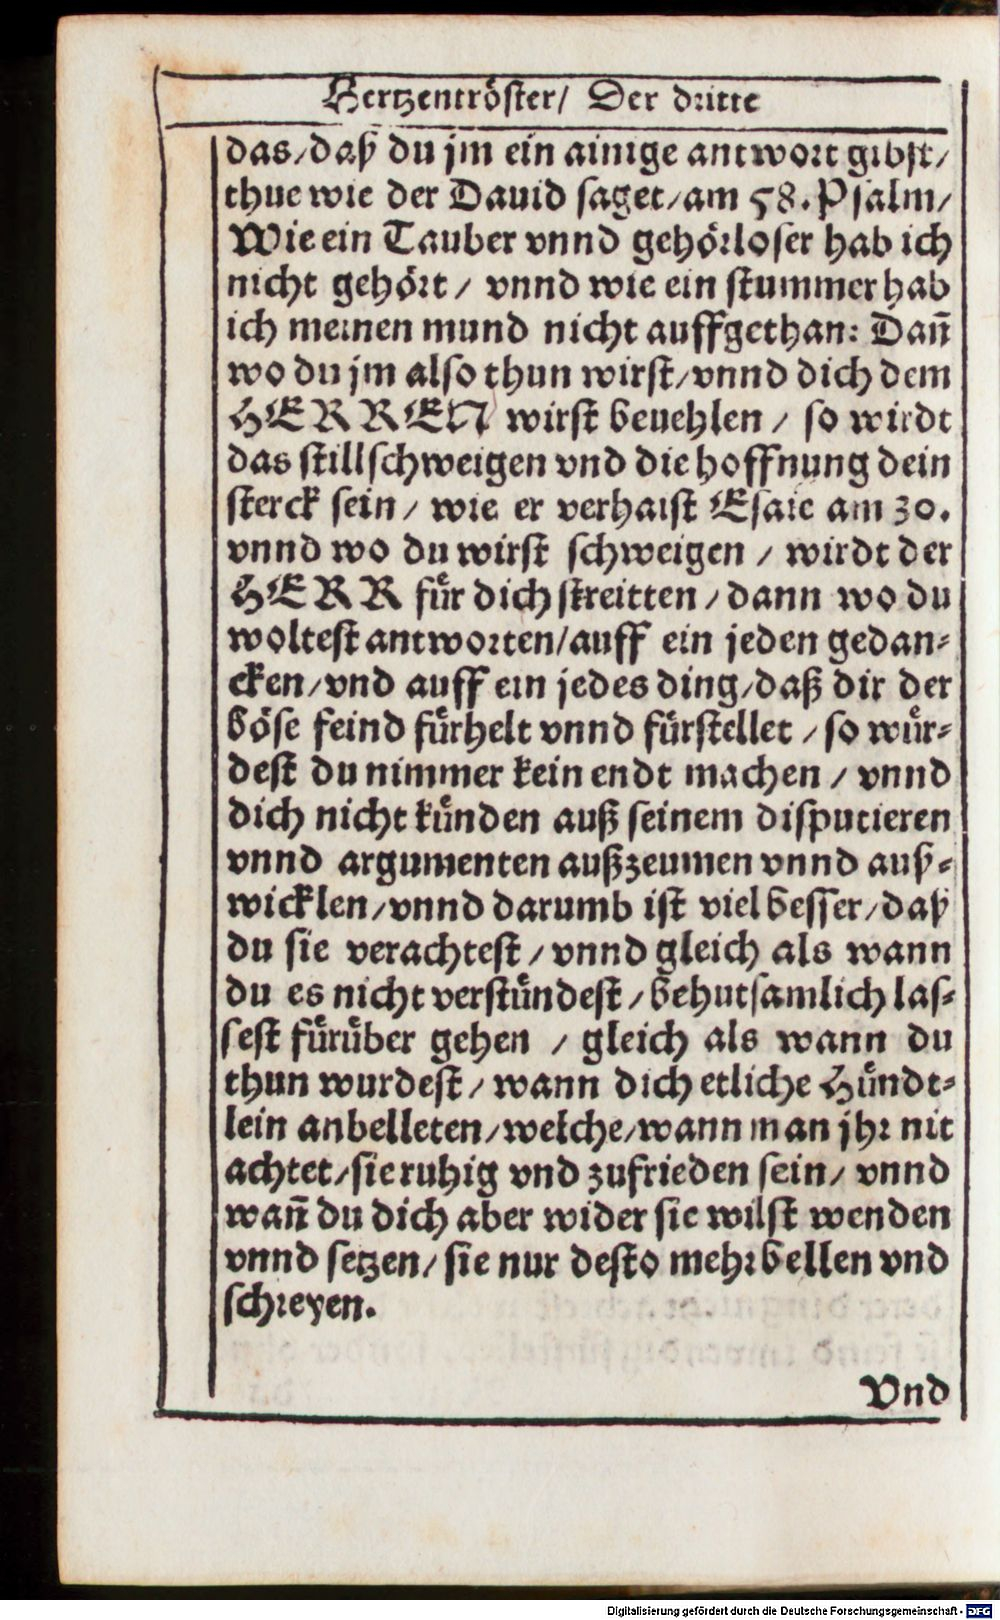 Hertzentröster/ Der dritte
das/daß du jm ein ainige antwort gibst/
thue wie der Dauid saget/am 58. Psalm/
Wie ein Tauber vnnd gehörloser hab ich
nicht gehört / vnnd wie ein stummer hab
ich meinen mund nicht auffgethan: Dañ
wo du jm also thun wirst/vnnd dich dem
HERREN wirst beuehlen / so wirdt
das stillschweigen vnd die hoffnung dein
sterck sein/ wie er verhaist Esaie am 30.
vnnd wo du wirst schweigen / wirdt der
HERR für dich streitten / dann wo du
woltest antworten/auff ein jeden gedan-
cken/vnd auff ein jedes ding/daß dir der
böse feind fürhelt vnnd fürstellet / so wür-
dest du nimmer kein endt machen / vnnd
dich nicht künden auß seinem disputieren
vnnd argumenten außzeumen vnnd auß-
wicklen/vnnd darumb ist viel besser/daß
du sie verachtest / vnnd gleich als wann
du es nicht verstündest / behutsamlich las-
sest fürüber gehen / gleich als wann du
thun wurdest / wann dich etliche Hündt-
lein anbelleten/welche/wann man jhr nit
achtet/sie ruhig vnd zufrieden sein/ vnnd
wañ du dich aber wider sie wilst wenden
vnnd setzen/ sie nur desto mehr bellen vnd
schreyen.
Vnd
Digitalisierung gefördert durch die Deutsche Forschungsgemeinschaft - DFG